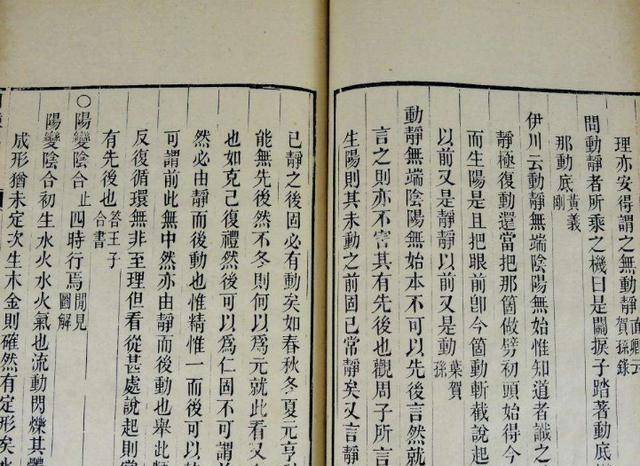 理亦安得謂之無動靜賀孫錄
問動靜者所乘之機曰是關捩子踏著動底機
那動底黃義剛
伊川云動靜無端陰陽無始惟知道者識之
靜極復動還當把那箇做劈初頭始得今
而生陽是且把眼前卽今箇動斬截說起
以前又是靜靜以前又是動葉賀孫
動靜無端陰陽無始本不可以先後言然就
言之則亦不害其有先後也觀周子所言
生陽則其未動之前固已常靜矣又言靜
已靜之後固必有動矣如春秋冬夏元亨
能無先後然不冬則何以爲元就此看又
也如克己復禮然後可以爲仁固不可謂前
然必由靜而後動也惟精惟一而後可以
可謂前此無中然亦由靜而後動也舉此
反復循環無非至理但看從甚處說起則
有先後也答王子合書
○陽變陰合止四時行焉閒見圖解
陽變陰合初生水火水火氣也流動閃爍其
成形猶未定次生木金則確然有定形矣